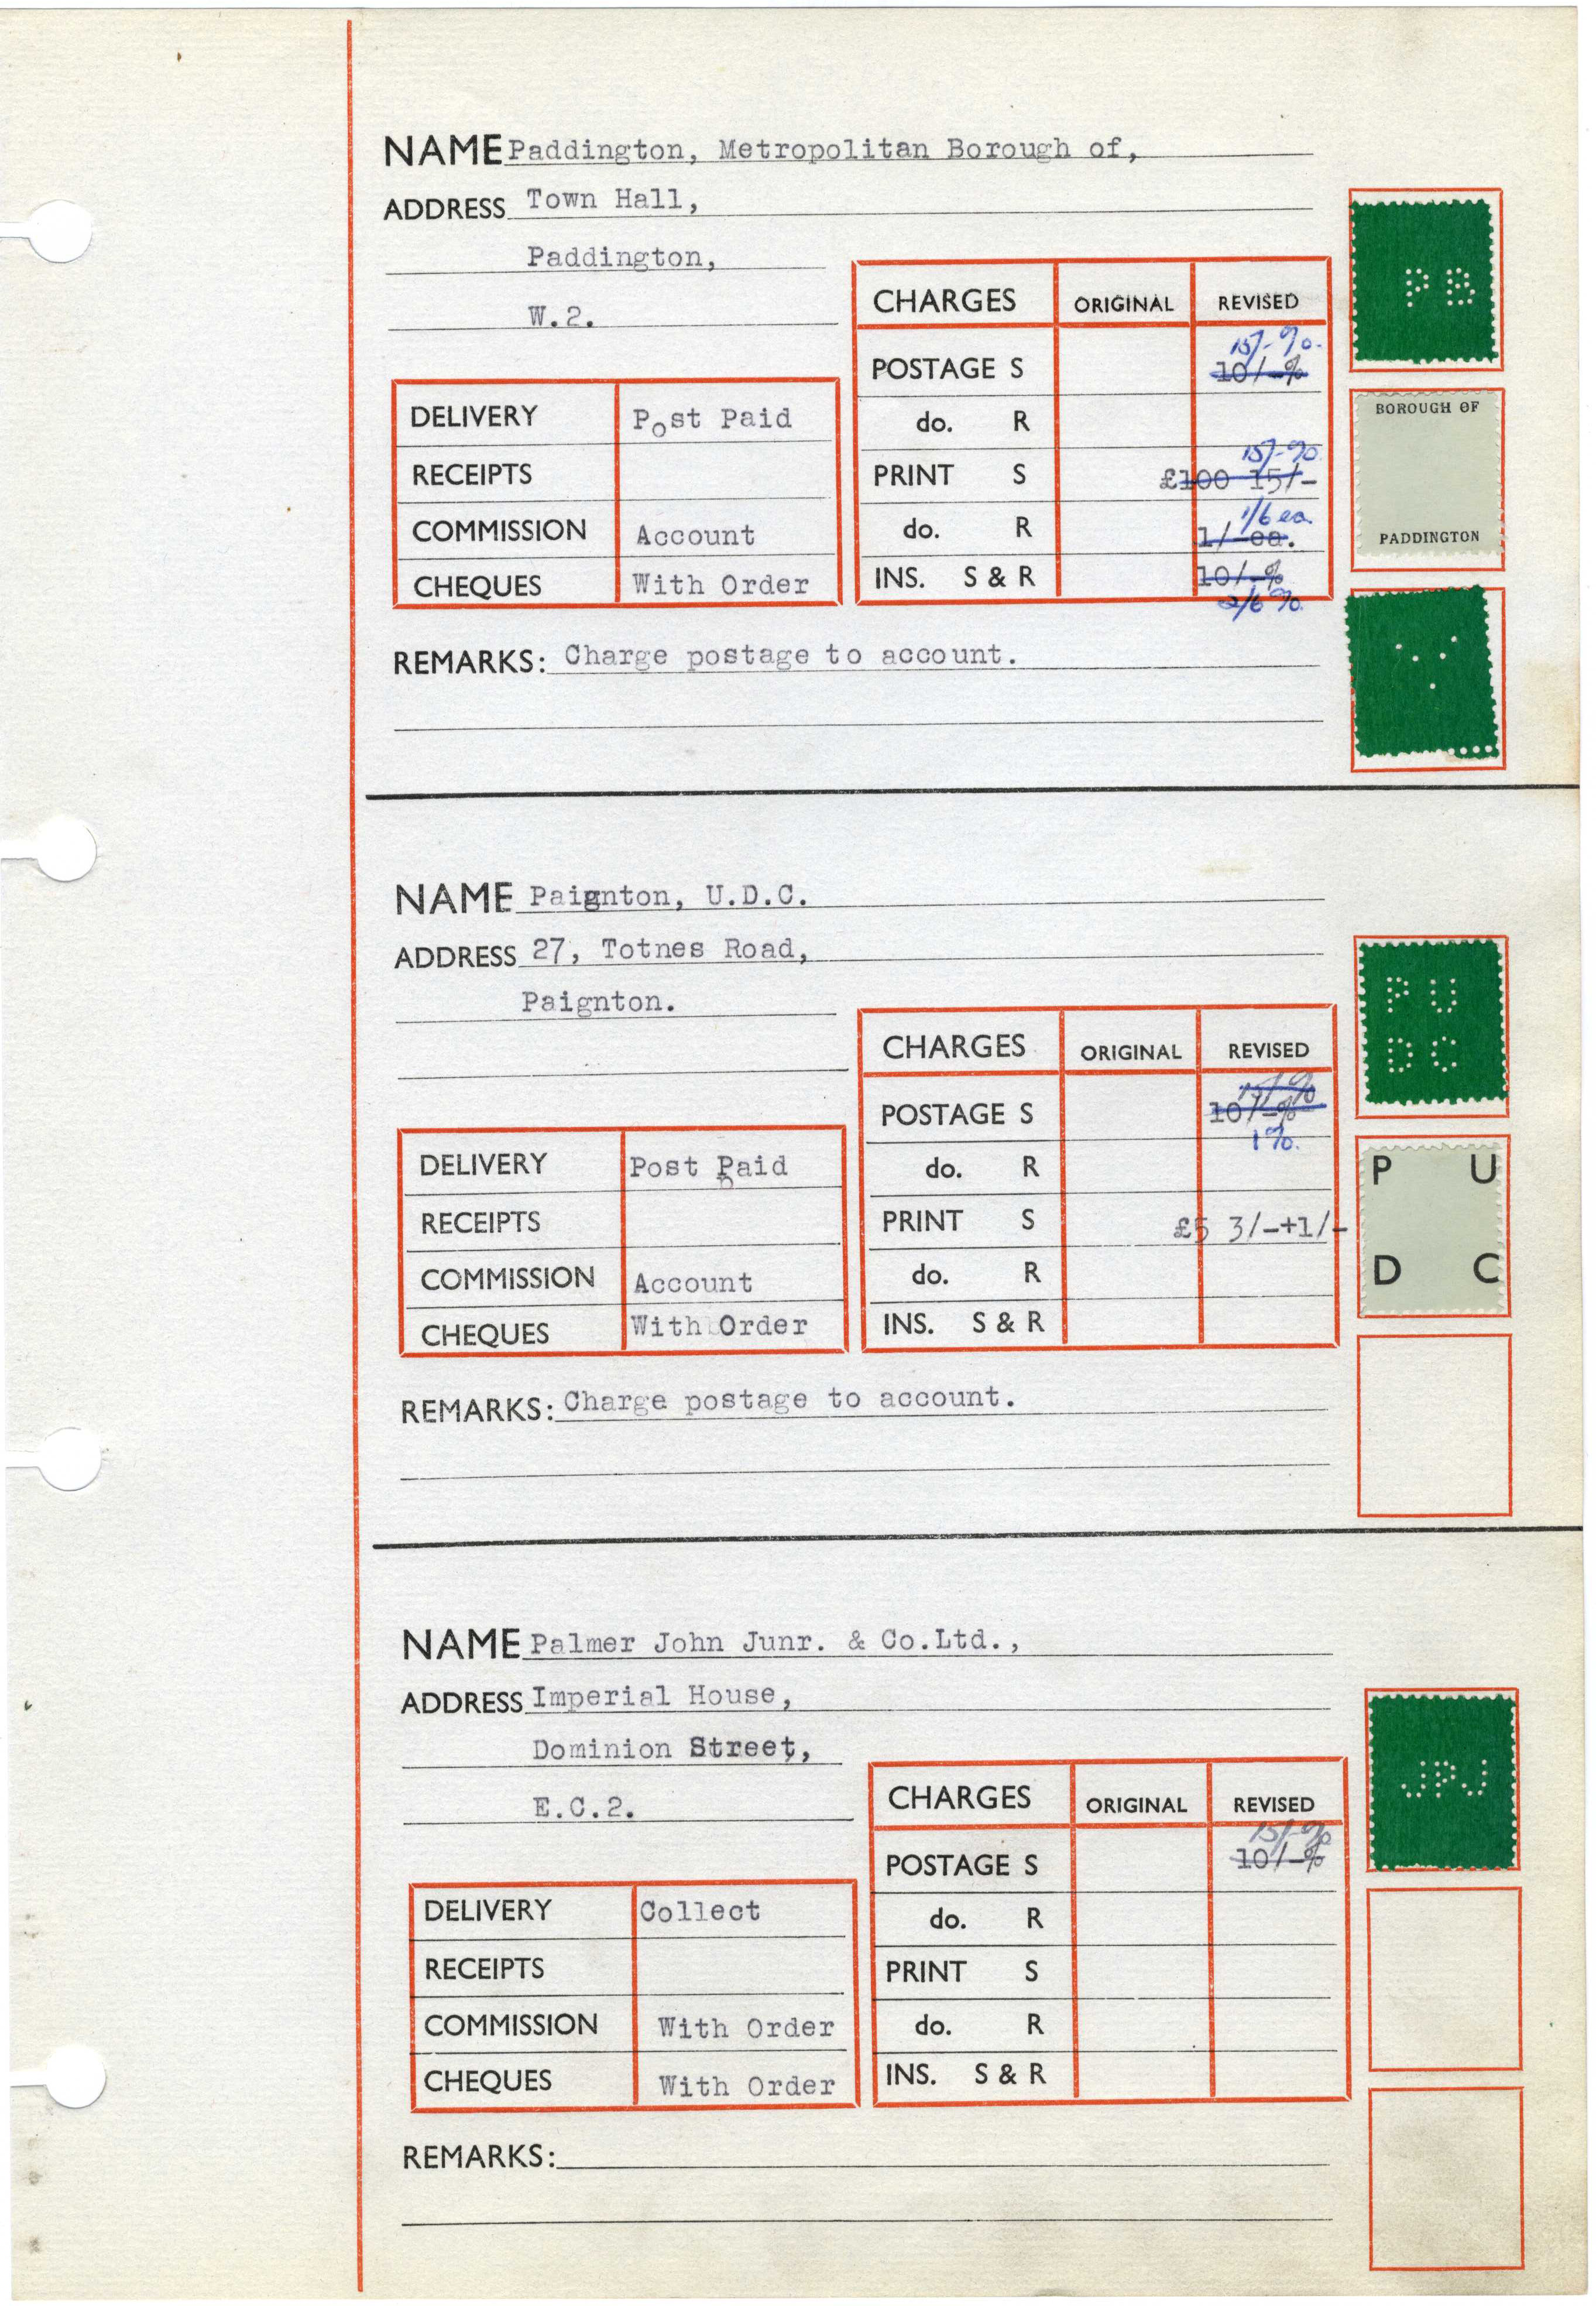 NAME Paddington, Metropolitan Borough of,
ADDRESS Town Hall,
Paddington,
W.2.
CHARGES ORIGINAL REVISED
POSTAGE S 15/-%. 10/-%
do. R
PRINT S £100 15/- 15/-%.
do. R 1/-ea. 1/6 ea.
INS. S & R 10/-% 2/6 %.
DELIVERY Post Paid
RECEIPTS
COMMISSION Account
CHEQUES With Order
REMARKS: Charge postage to account.
P B
BOROUGH OF
PADDINGTON
NAME Paignton, U.D.C.
ADDRESS 27, Totnes Road,
Paignton.
CHARGES ORIGINAL REVISED
POSTAGE S 15/-% 10/-% 1%.
do. R
PRINT S £5 3/-+1/-
do. R
INS. S & R
DELIVERY Post Paid
RECEIPTS
COMMISSION Account
CHEQUES With Order
REMARKS: Charge postage to account.
P U
D C
P U
D C
NAME Palmer John Junr. & Co.Ltd.,
ADDRESS Imperial House,
Dominion Street,
E.C.2.
CHARGES ORIGINAL REVISED
POSTAGE S 15/-% 10/-%
do. R
PRINT S
do. R
INS. S & R
DELIVERY Collect
RECEIPTS
COMMISSION With Order
CHEQUES With Order
REMARKS:
JPJ